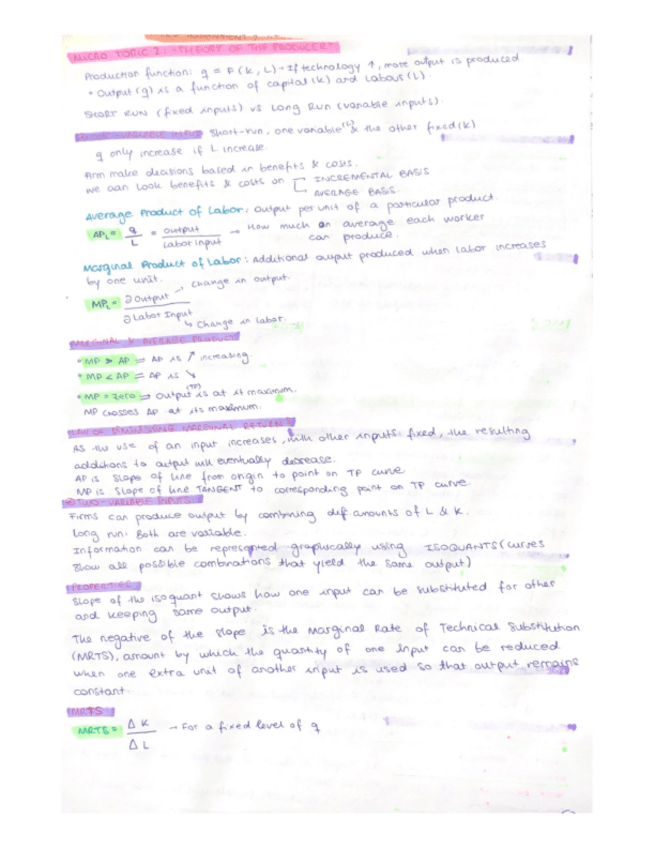 MICRO TOPIC 2: "THEORY OF THE PRODUCER"
Production function: q = F(K, L) - If technology ↑, more output is produced
• Output (q) is a function of capital (K) and Labour (L).
SHORT RUN (fixed inputs) vs Long Run (variable inputs).
Short-run, one variable (L) & the other fixed (K)
q only increase if L increase.
Firm make decisions based in benefits & costs.
we can look benefits & costs on INCREMENTAL BASIS
AVERAGE BASIS.
Average Product of Labor: Output per unit of a particular product.
APL = q/L = output/Labor input → How much on average each worker
can produce.
Marginal Product of Labor: Additional output produced when labor increases
by one unit.
MPL = ∂ Output/∂ Labor Input → Change in output.
↳ Change in labor.
MARGINAL & AVERAGE PRODUCT
• MP > AP = AP is ↗ increasing.
• MP < AP = AP is ↘
• MP = Zero ⇒ Output (TP) is at it maximum.
MP crosses AP at its maximum.
LAW OF DIMINISHING MARGINAL RETURNS
As the use of an input increases, with other inputs fixed, the resulting
additions to output will eventually decrease.
AP is slope of line from origin to point on TP curve
MP is slope of line TANGENT to corresponding point on TP curve
TWO-VARIABLE INPUTS
Firms can produce output by combining dif amounts of L & K.
Long run: Both are variable.
Information can be represented graphically using ISOQUANTS (curves
show all possible combinations that yield the same output)
PROPERTIES
Slope of the isoquant shows how one input can be substituted for other
and keeping same output.
The negative of the slope is the Marginal Rate of Technical Substitution
(MRTS), amount by which the quantity of one input can be reduced
when one extra unit of another input is used so that output remains
constant.
MRTS
MRTS = ΔK/ΔL → For a fixed level of q